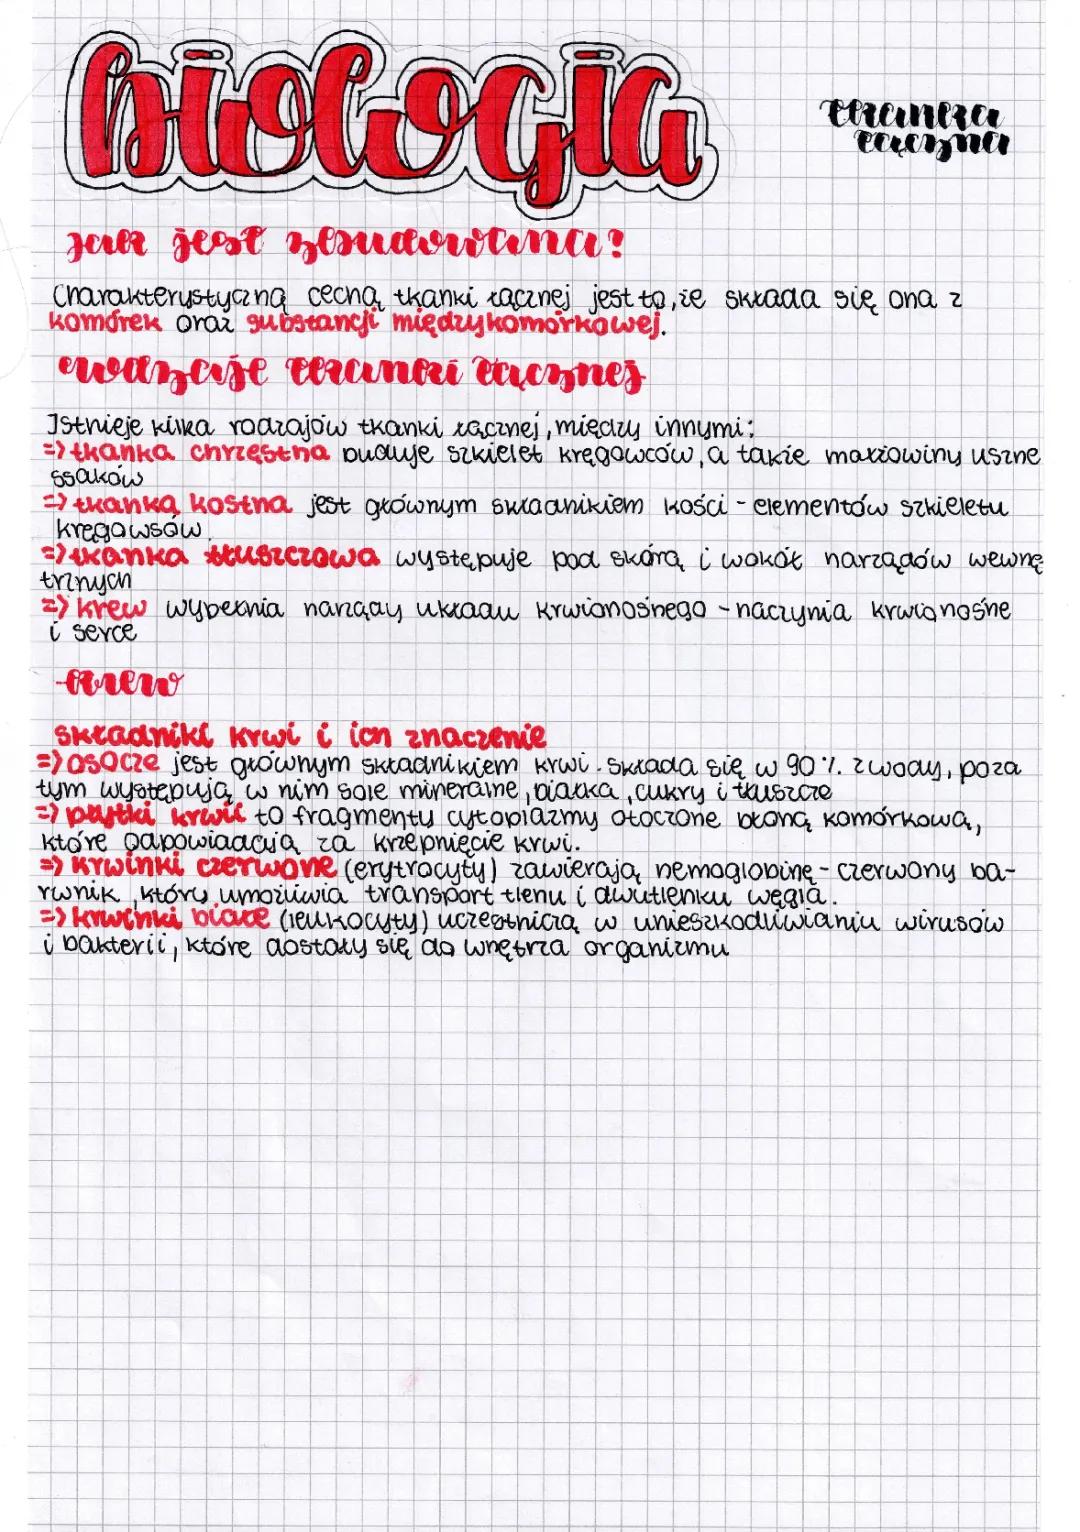 biologia
tkanka
łączna
jak jest zbudowana?
Charakterystyczną cechą tkanki łącznej jest to, że składa się ona z
komórek oraz substancji międzykomórkowej.
rodzaje tkanki łącznej
Istnieje kilka rodzajów tkanki łącznej, między innymi:
=> tkanka chrzęstna buduje szkielet kręgowców, a także małżowiny uszne
ssaków
=> tkanka kostna jest głównym składnikiem kości - elementów szkieletu
kręgowsów.
=> tkanka tłuszczowa występuje pod skórą i wokół narządów wewnę
trznych
=> krew wypełnia narządy układu krwionośnego - naczynia krwionośne
i serce
-krew
składniki krwi i ich znaczenie
=> osocze jest głównym składnikiem krwi. Składa się w 90% z wody, poza
tym występują w nim sole mineralne, białka, cukry i tłuszcze
=> płytki krwi to fragmenty cytoplazmy otoczone błoną komórkową,
które odpowiadają za krzepnięcie krwi.
=> krwinki czerwone (erytrocyty) zawierają hemoglobinę - czerwony ba-
rwnik, który umożliwia transport tlenu i dwutlenku węgla.
=> krwinki białe (leukocyty) uczestniczą w unieszkodliwianiu wirusów
i bakterii, które dostały się do wnętrza organizmu